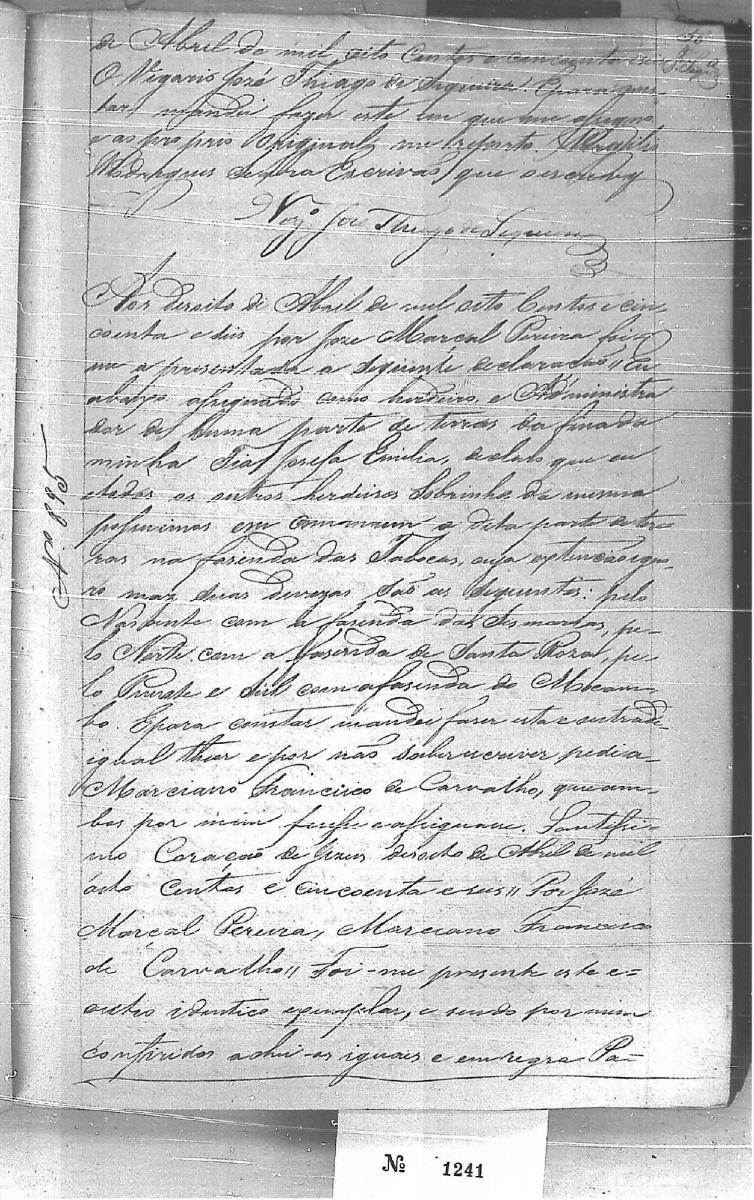 de Abril de mil oito Centos e cincoenta e seis
O Vigario José Thiago de Siqueira E para cons-
tar mandei fazer este em que me assigno
e ao proprio Original me reporto.
Escrivão que o escrevy
Vigº José Thiago de Siqueira
Aos desoito de Abril de mil oito Centos e cin-
coenta e seis por Jozé Marçal Pereira foi-
me a presentada a seguinte declaração // Eu
abaixo assignado como herdeiro, e Administra
dor de huma parte de terras da finada
minha Tia Josefa Emilia, declaro que eu
e todos os outros herdeiros Sobrinhos da mesma
possuimos em commum a dita parte de ter-
ras na fasenda das Tabocas, cuja extenção igno-
ro maz suas devezas São as Seguintes: pelo
Nascente com a fasenda das Sesmarias, pe-
lo Norte com a fasenda de Santa Roza, pe-
lo Poente e Sul com a fasenda do Mocam-
bo. E para constar mandei faser esta e outra de
igual theor e por não saber escrever pedi a
Marciano Francisco de Carvalho, que am-
bas por mim fisesse e assignasse. Santissi-
mo Coração de Jezus desoito de Abril de mil
oito Centos e cincoenta e seis // Por Jozé
Marçal Pereira, Marciano Francisco
de Carvalho // Foi-me presente este e
outro identico exemplar, e sendo por mim
conferidos achei-os iguais e em regra Pa-
Nº 895
Nº 1241